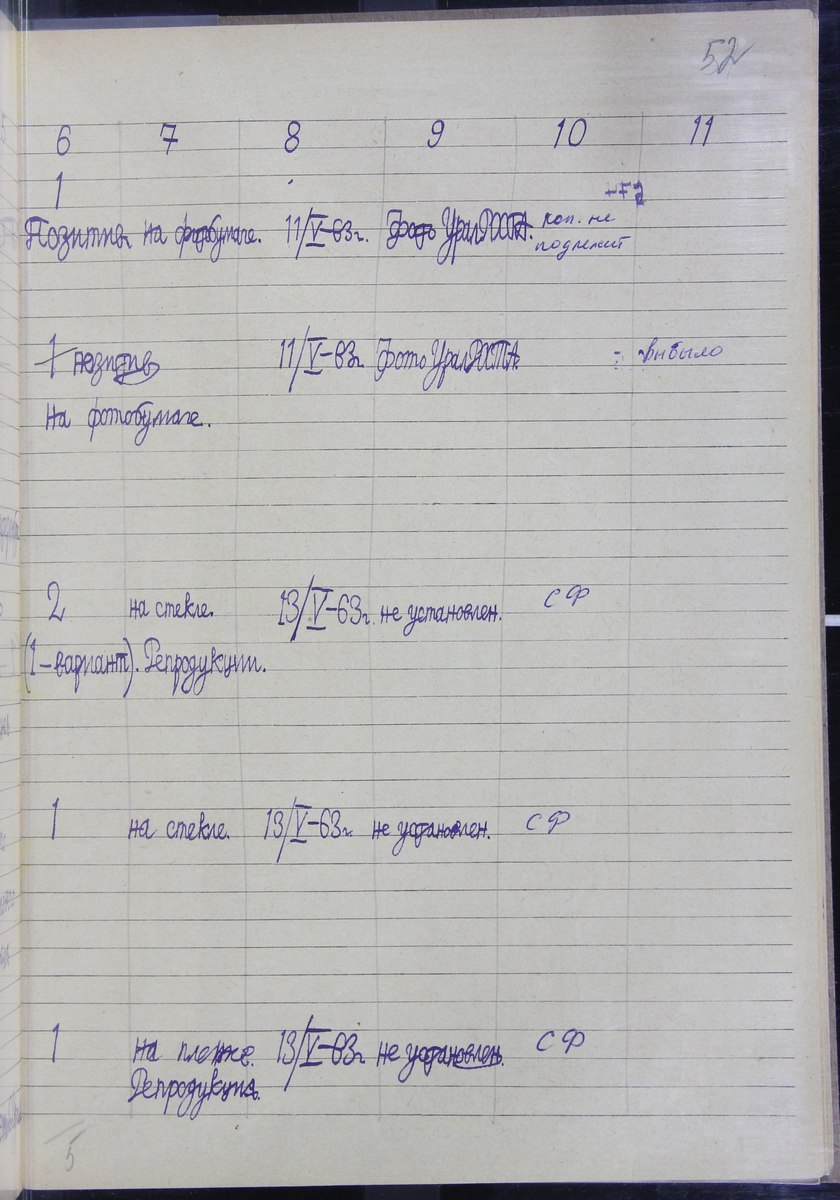 52
6 7 8 9 10 11
1
Позитив на фотобумаге. 11/V-63г. Фото УралРОСТА. коп. не
подлежит
1 позитив 11/V-63г. Фото УралРОСТА. выбыло
на фотобумаге.
2 на стекле. 13/V-63г. не установлен. СФ
(1-вариант). Репродукции.
1 на стекле. 13/V-63г. не установлен. СФ
1 на пленке. 13/V-63г. не установлен. СФ
Репродукция.
5